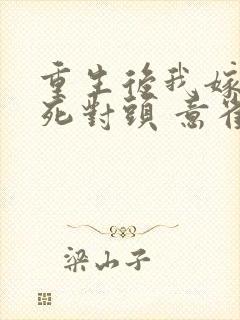 重生後我嫁
死對頭 意
梁山子